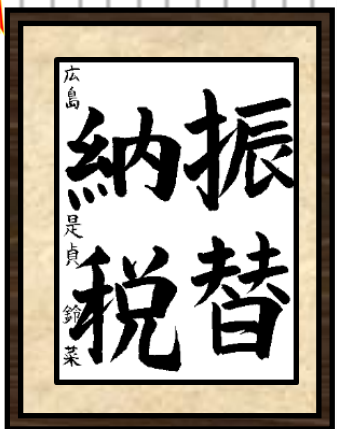 振替
納税
広島 是貞 鈴菜